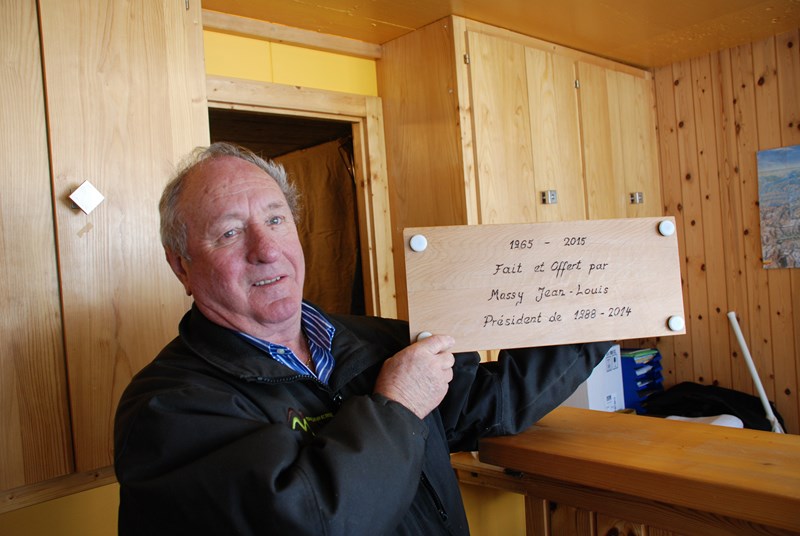 1965 - 2015
Fait et Offert par
Mossy Jean-Louis
Président de 1988-2014